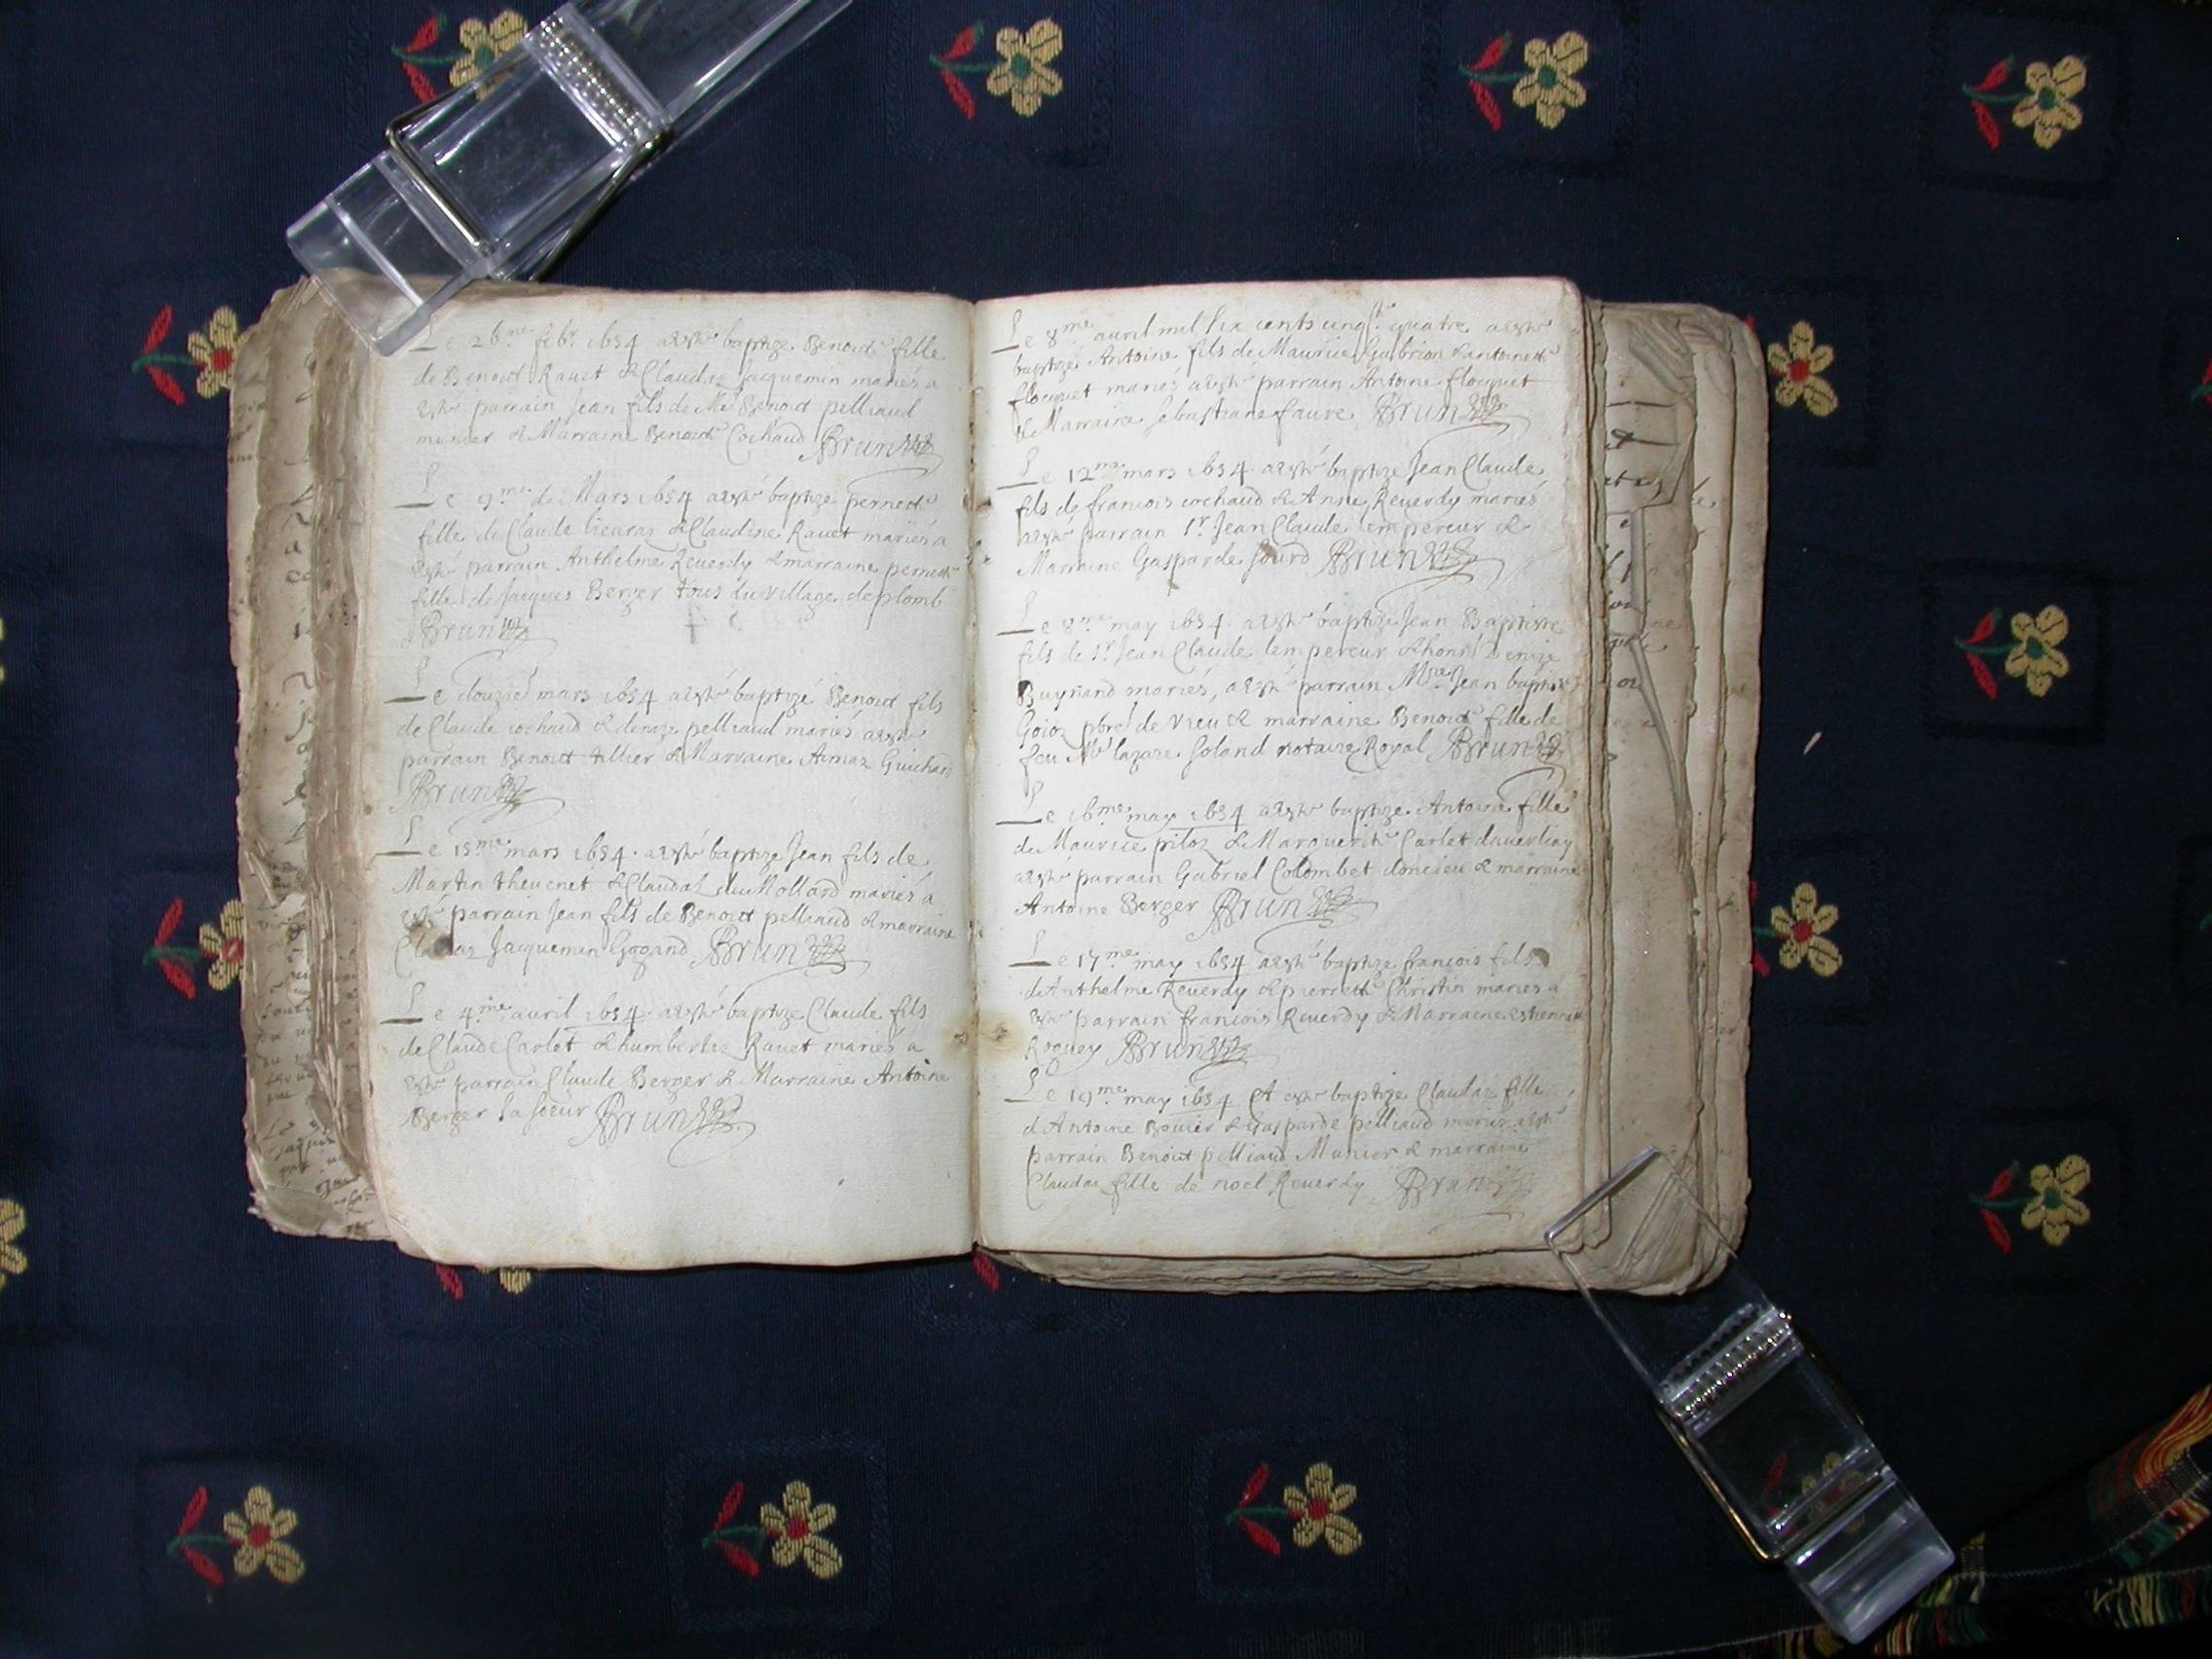 Le 26me febr 1654 a esté baptize Benoite fille
de Benoict Rauet & Claudaz Jacquemin mariés a
esté parrain Jean fils de Me Benoict pelliaud
munier & Marraine Benoite Cochaud Brun
Le 9me de Mars 1654 a esté baptize pernette
fille de Claude & Claudine Rauet mariés a
esté parrain Anthelme Reuerdy & marraine pernette
fille de Jacques Berger tous du village de plomb
Brun
Le douzie mars 1654 a esté baptizé Benoict fils
de Claude cochaud & denize pelliaud mariés a esté
parrain Benoict tillier & Marraine Aimaz Guichard
Brun
Le 15me mars 1654 a esté baptize Jean fils de
Martin theuenet & Claudaz du Mollard mariés a
esté parrain Jean fils de Benoict pelliaud & marraine
Claudaz Jacquemin Gogand Brun
Le 4me auril 1654 a esté baptize Claude fils
de Claude Carlet & humberte Rauet mariés a
esté parrain Claude Berger & Marraine Antoine
Berger sa soeur Brun
Le 8me auril mil six cents cinqte quatre a esté
baptizé Antoine fils de Maurice Gubrion & antoinette
flocquet mariés a esté parrain Antoine flocquet
& Marraine sebastiane faure Brun
Le 12me mars 1654 a esté baptize Jean Claude
fils de francois cochaud & Anne Reuerdy mariés
a esté parrain sr Jean Claude lempereur &
Marraine Gasparde sourd Brun
Le 8me may 1654 a esté baptize Jean Baptiste
fils de sr Jean Claude lempereur & honn Denize
Buynand mariés, a esté parrain Msre Jean baptiste
Goioz pbre de vieu & marraine Benoite fille de
feu Me lazare soland notaire Royal Brun
Le 16me may 1654 a esté baptize Antoine fille
de Maurice pitoz & Marguerite Carlet
a esté parrain Gabriel Colombet doncieu & marraine
Antoine Berger Brun
Le 17me may 1654 a esté baptize francois fils
d'Anthelme Reuerdy & pierrette Christin mariés a
esté parrain francois Reuerdy & Marraine estiennette
Roguey Brun
Le 19me may 1654 a esté baptize Claudaz fille
d Antoine Bouier & Gasparde pelliaud mariés a esté
parrain Benoict pelliaud Munier & marraine
Claudaz fille de noel Reuerdy Brun